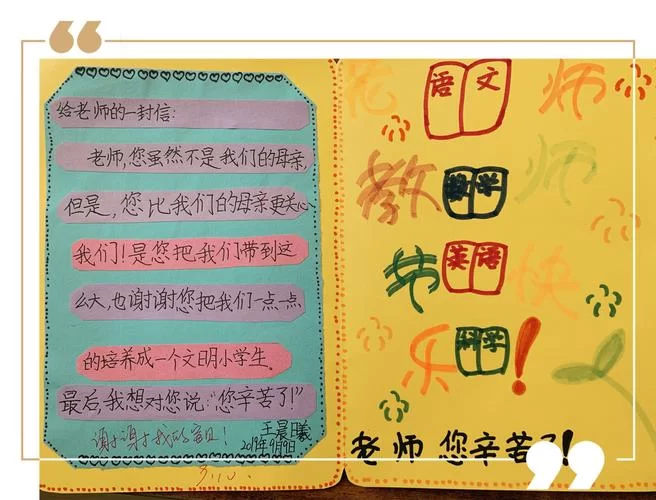 给老师的一封信:
老师,您虽然不是我们的母亲,
但是,您比我们的母亲更关心
我们!是您把我们带到这
么大,也谢谢您把我们一点一点
的培养成一个文明小学生。
最后,我想对您说:“您辛苦了!”
王晨曦
2019年9月9日
语文 师
教 数学 师
节 英语 快
乐 科学 !
老师 您辛苦了!